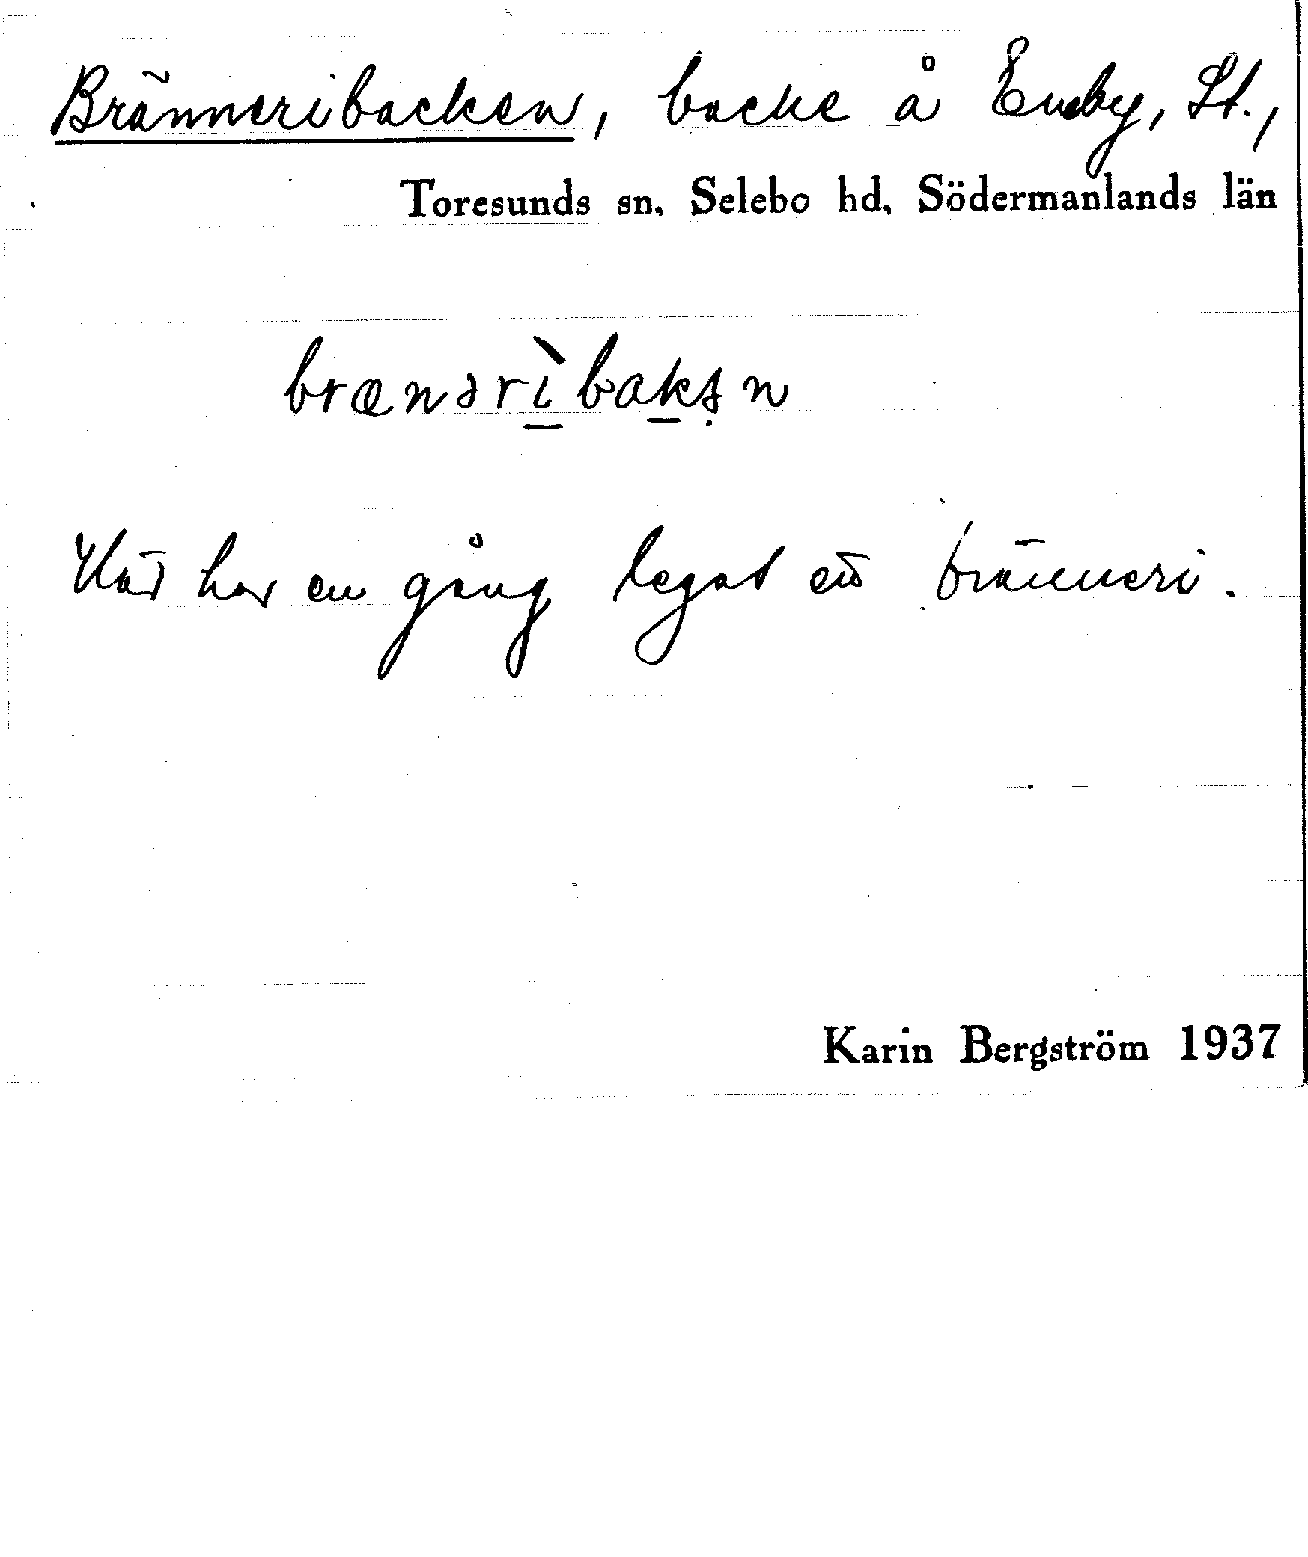 Bränneribacken, backe å Eneby, St.,
Toresunds sn, Selebo hd, Södermanlands län
brænərìbakən
Här har en gång legat ett bränneri.
Karin Bergström 1937